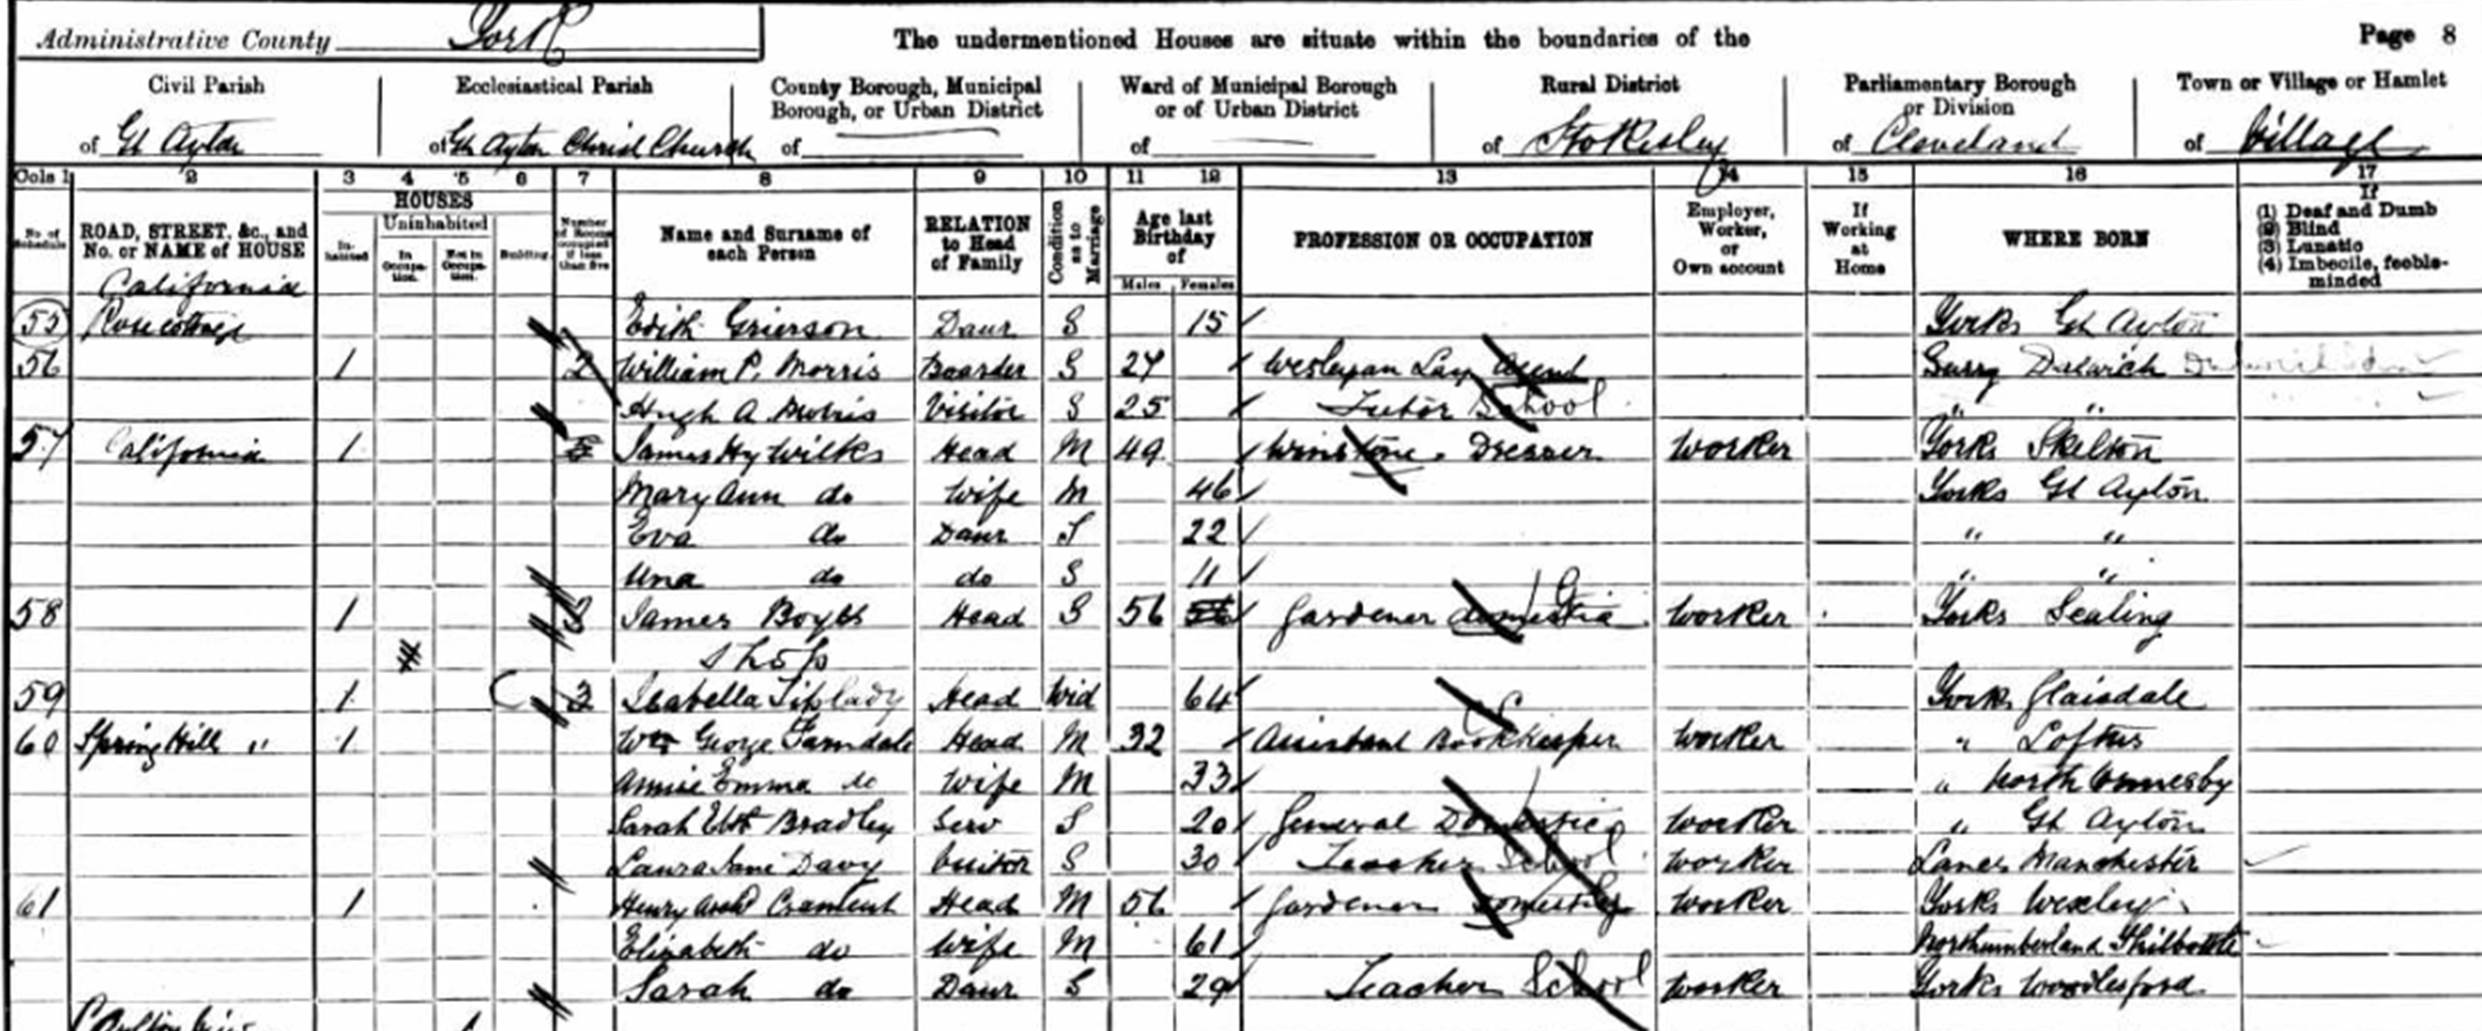 Administrative County York The undermentioned Houses are situate within the boundaries of the Page 8
Civil Parish Ecclesiastical Parish County Borough, Municipal Borough, or Urban District Ward of Municipal Borough or of Urban District Rural District Parliamentary Borough or Division Town or Village or Hamlet
of Gt Ayton of Gt Ayton Christ Church of of of Stokesley of Cleveland of Village
Cols 1 2 3 4 5 6 7 8 9 10 11 12 13 14 15 16 17
No of Schedule ROAD, STREET, &c., and No. or NAME of HOUSE HOUSES Inhabited Uninhabited In Occupation. Not in Occupation. Building. Number of Rooms occupied if less than five Name and Surname of each Person RELATION to Head of Family Condition as to Marriage Age last Birthday of Males Females PROFESSION OR OCCUPATION Employer, Worker, or Own account If Working at Home WHERE BORN If (1) Deaf and Dumb (2) Blind (3) Lunatic (4) Imbecile, feeble-minded
California
55 Rose cottage Edith Grierson Daur S 15 Yorks Gt Ayton
56 1 2 William P. Morris Boarder S 27 Wesleyan Lay Agent Surry Dulwich
Hugh A Morris Visitor S 25 Tutor School " "
57 California 1 James Hy Wilks Head M 49 Whinstone Dresser Worker Yorks Skelton
Mary Ann do Wife M 46 Yorks Gt Ayton
Eva do Daur S 22 " "
Una do do S 11 " "
58 1 3 James Boyes Head S 56 Gardener domestic Worker Yorks Scaling
Shop
59 1 3 Isabella Tiplady Head Wid 64 Yorks Glaisdale
60 Spring Hill " 1 Wm George Farndale Head M 32 Assistant Bookkeeper Worker " Loftus
Annie Emma do Wife M 33 " North Ormesby
Sarah Elzth Bradley Serv S 20 General Domestic Worker " Gt Ayton
Laura Jane Davy Visitor S 30 Teacher School Worker Lancs Manchester
61 1 Henry Crament Head M 56 Gardener Domestic Worker Yorks
Elizabeth do Wife M 61 Northumberland Shilbottle
Sarah do Daur S 29 Teacher School Worker Yorks Woodlesford